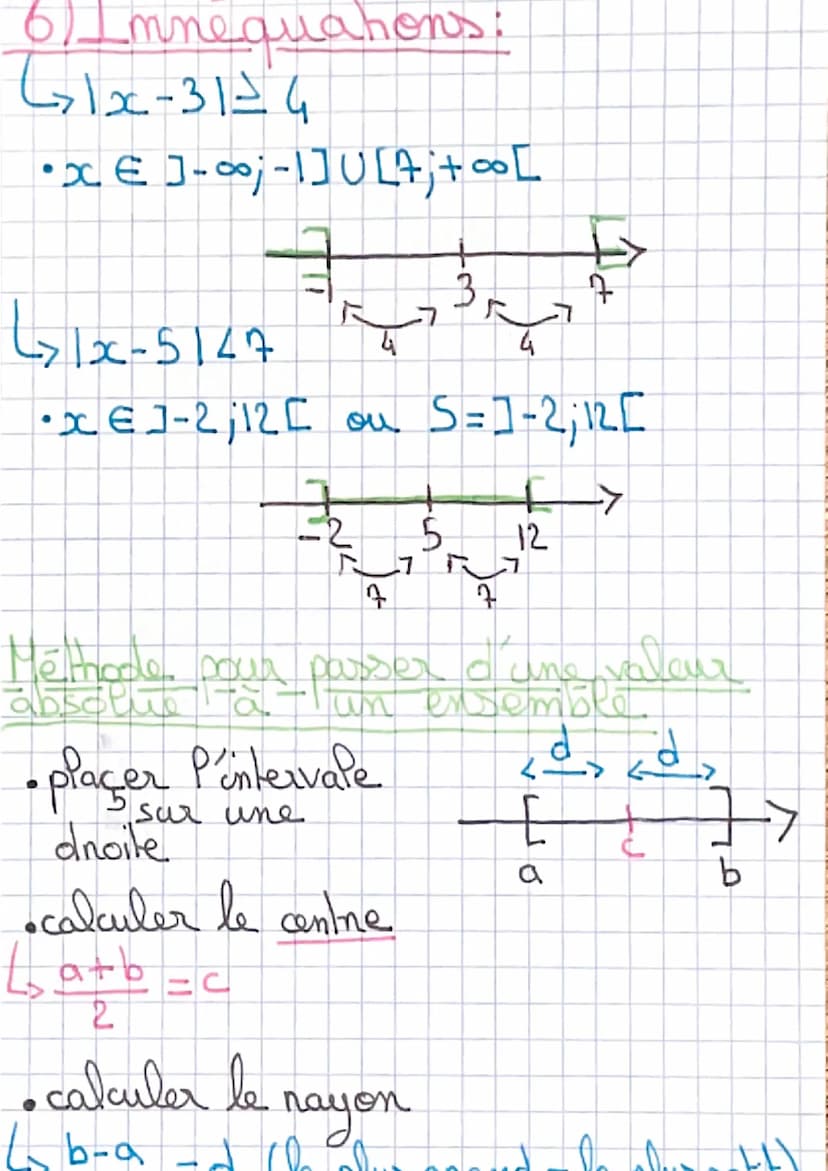 6) Innéquations:
↳ |x-3| ≥ 4
• x ∈ ]-∞; -1] ∪ [7; +∞[
-1 3 7
4 4
↳ |x-5| < 7
• x ∈ ]-2; 12[ ou S = ]-2; 12[
-2 5 12
7 7
Méthode pour passer d'une valeur
absolue à un ensemble
• placer l'intervale
↳ sur une
droite
d d
a c b
• calculer le centre
↳ a+b/2 = c
• calculer le rayon
↳ b-a = d (le plus grand - le plus